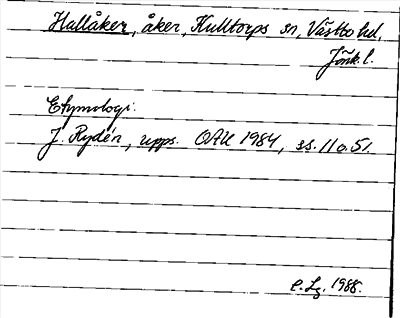 Hallåker, åker, Kulltorps sn, Västbo hd,
Jönk l.
Etymologi:
J. Rydén, upps. OAU 1984, ss. 11 o. 51.
E. Lg. 1988.